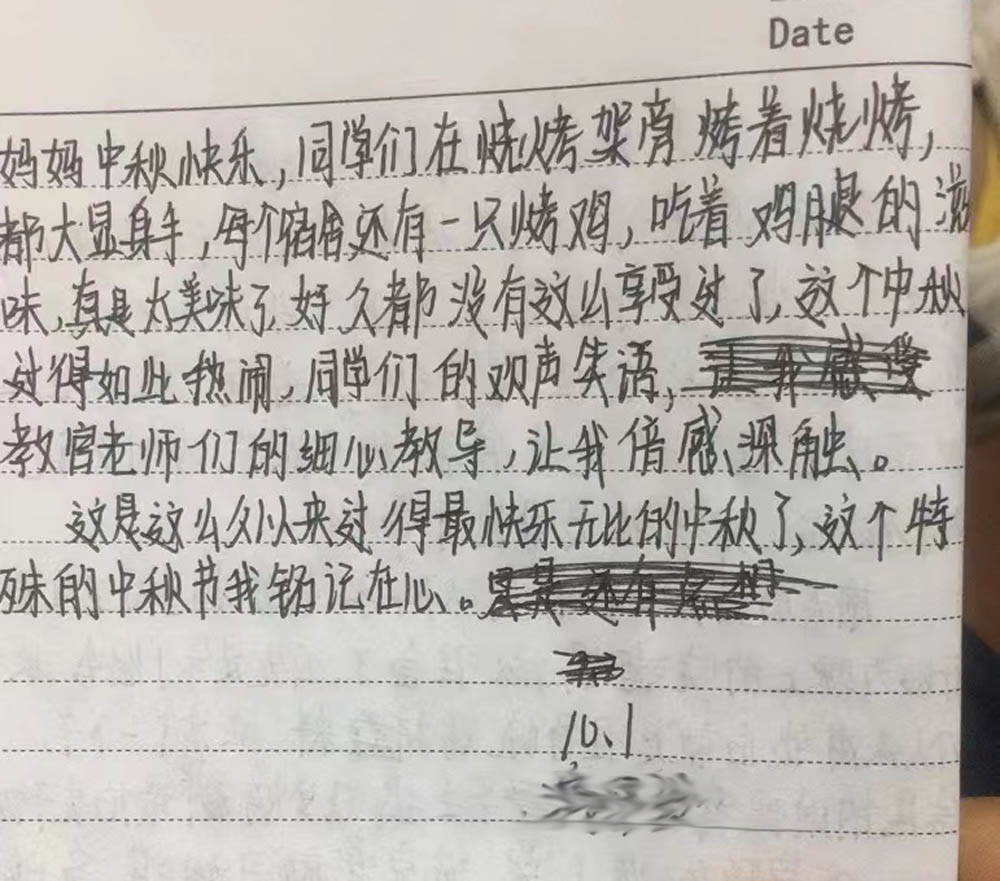 Date
妈妈中秋快乐,同学们在烧烤架旁烤着烧烤,
都大显身手,每个宿舍还有一只烤鸡,吃着鸡腿的滋
味,真是太美味了,好久都没有这么享受过了,这个中秋
过得如此热闹,同学们的欢声笑语,
教官老师们的细心教导,让我倍感深触。
这是这么久以来过得最快乐无比的中秋了,这个特
殊的中秋节我铭记在心。
10.1